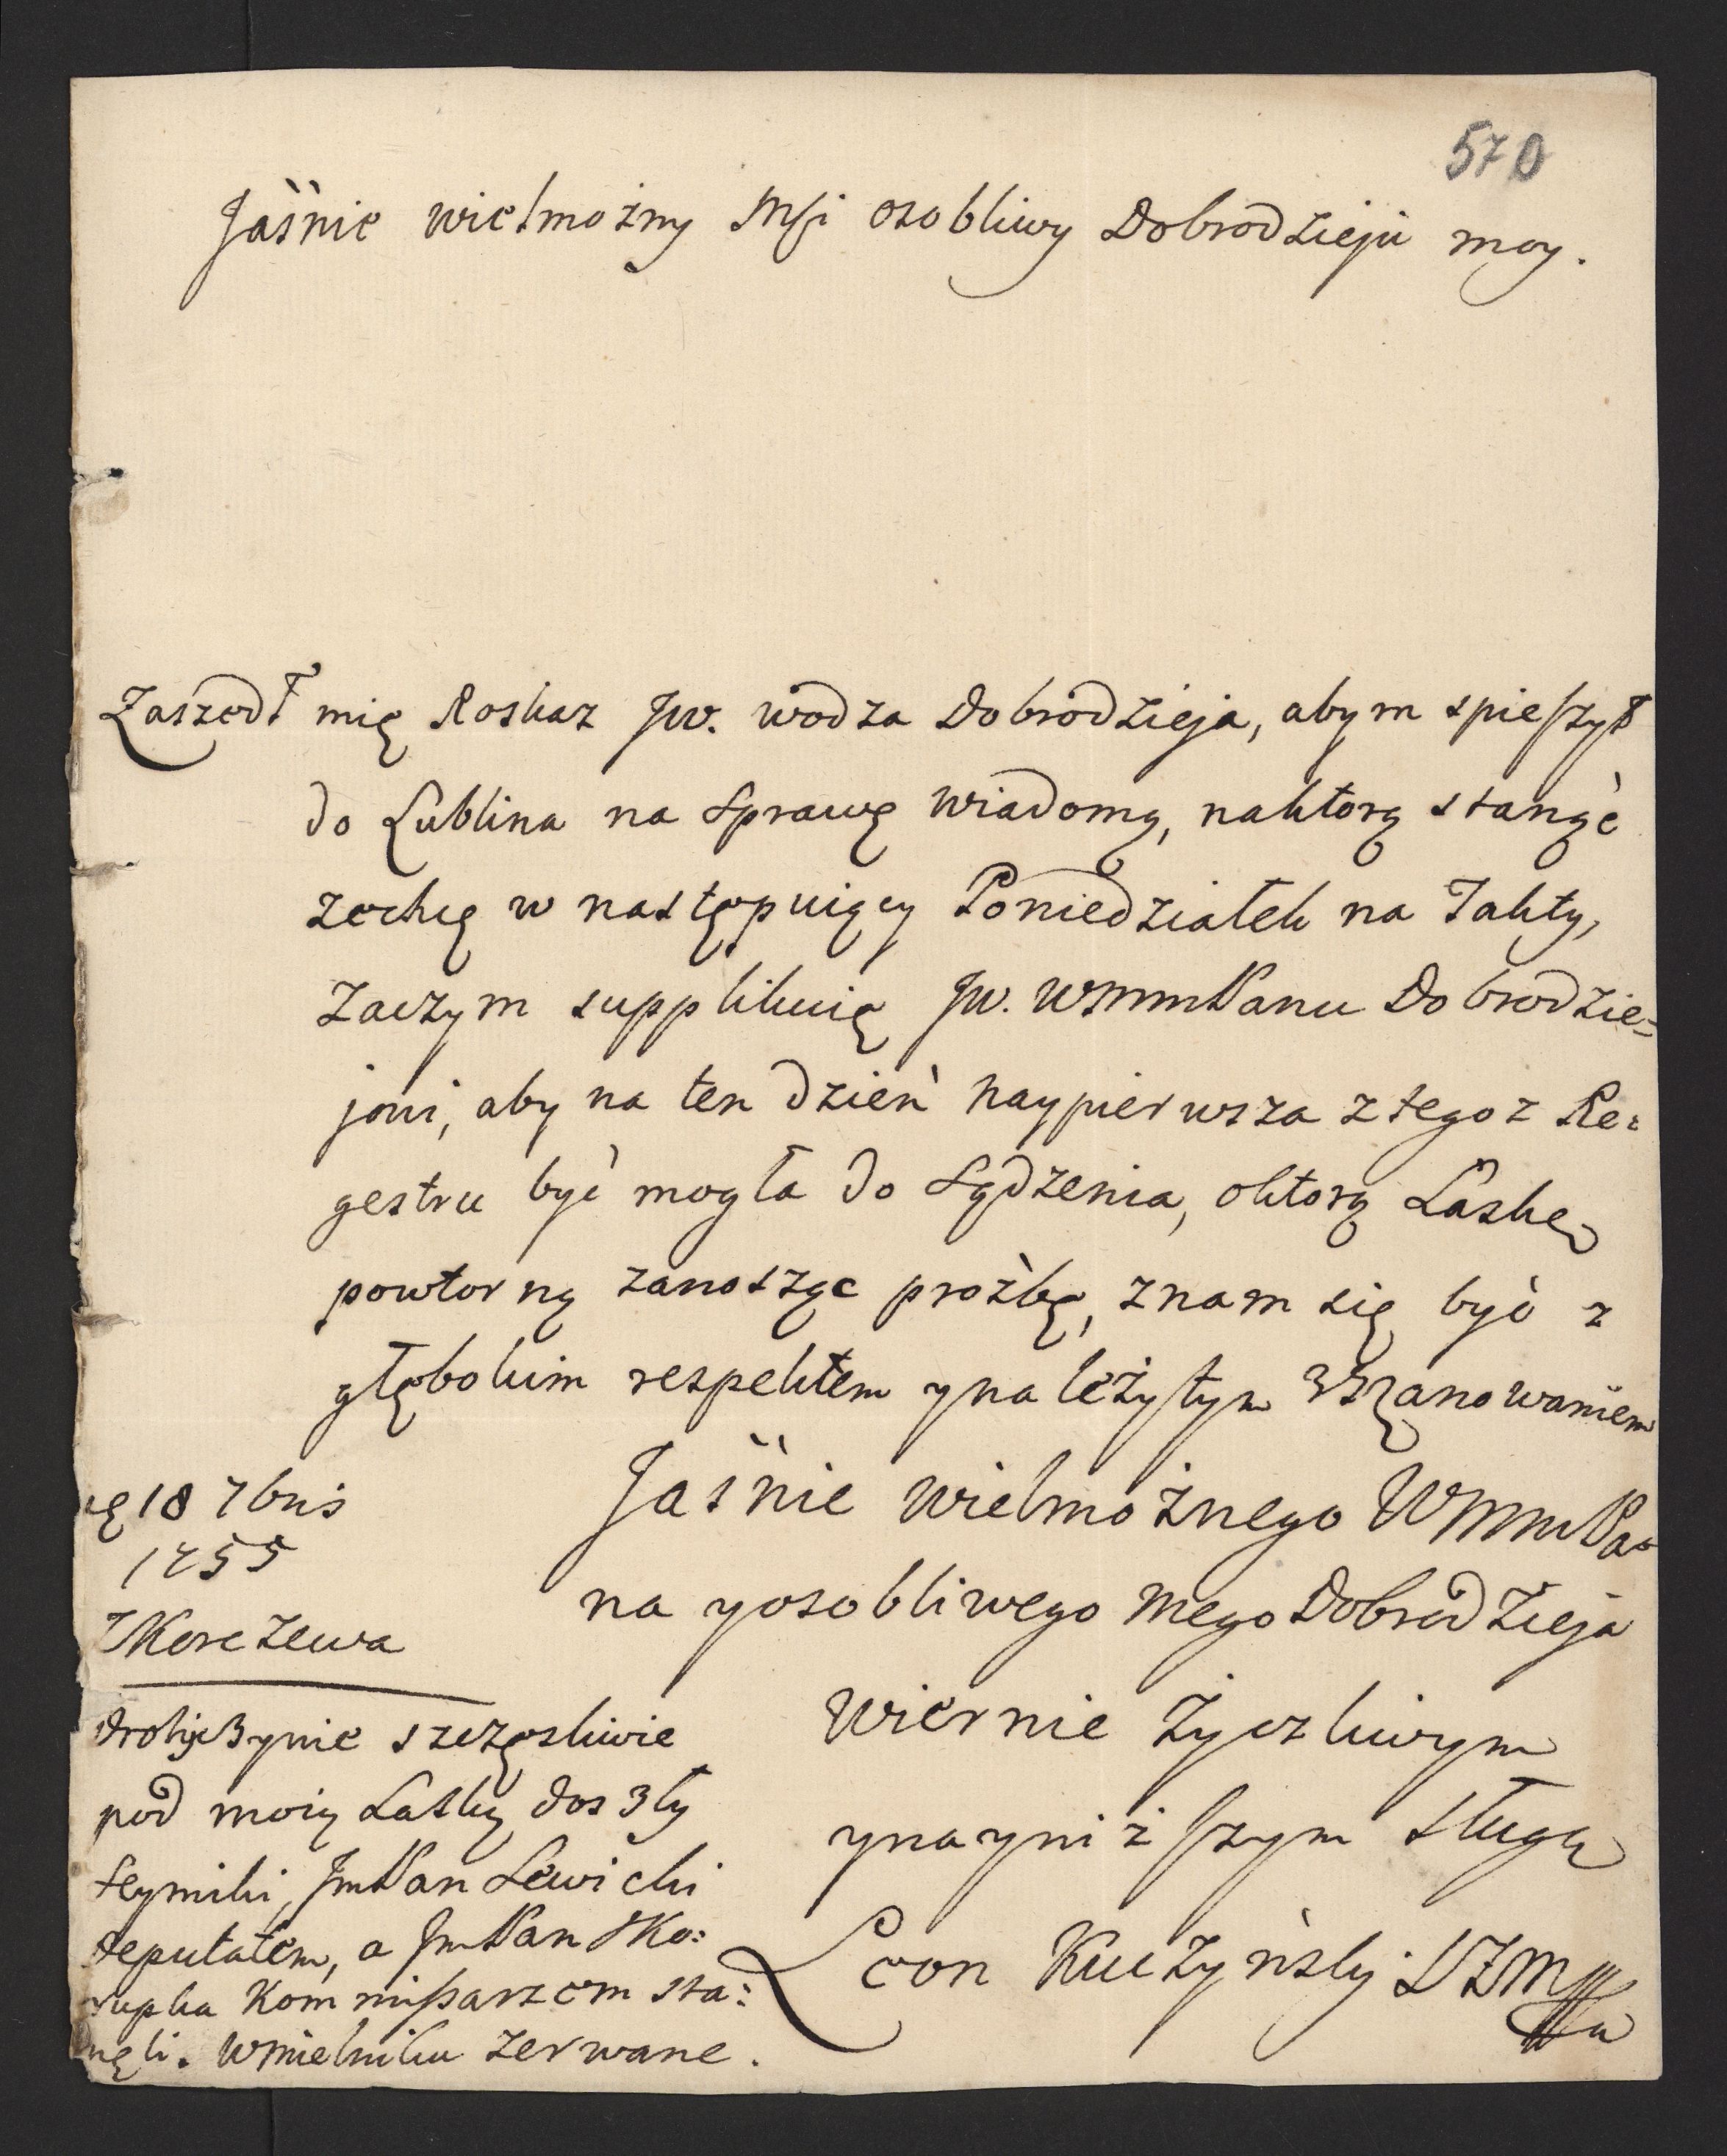 570
Jaśnie wielmożny Mſi osobliwy Dobrodzieju moy.
Zaszedł mię Roskaz Jw. wodza Dobrodzieja, abym spieſzył
do Lublina na Sprawę wiadomą, naktorą stanąć
zechcę w następuiący Poniedziałek na Takty,
Zaczym supplikuię Jw. WMMPanu Dobrodzie=
jowi, aby na ten dzień naypierwsza ztegoz Re=
gestru być mogła do Sądzenia, oktorą Łaskę
powtorną zanosząc prożbę, znam się być z
głębokim respektem ynależyſtym
Jaśnie wielmożnego WMMPa=
na yosobliwego mego Dobrodzieja
Wiernie życzliwym
ynayniżſzym sługą
Leon Kuczyński
18 7bris
1755
ZKorczewa
szczęsliwie
pod moią Laską dosZły
Seymiki, JmPan Lewicki
deputatem, a JmPan Sko=
rupka Kommißarzem sta=
nęli. WMielniku zerwane.